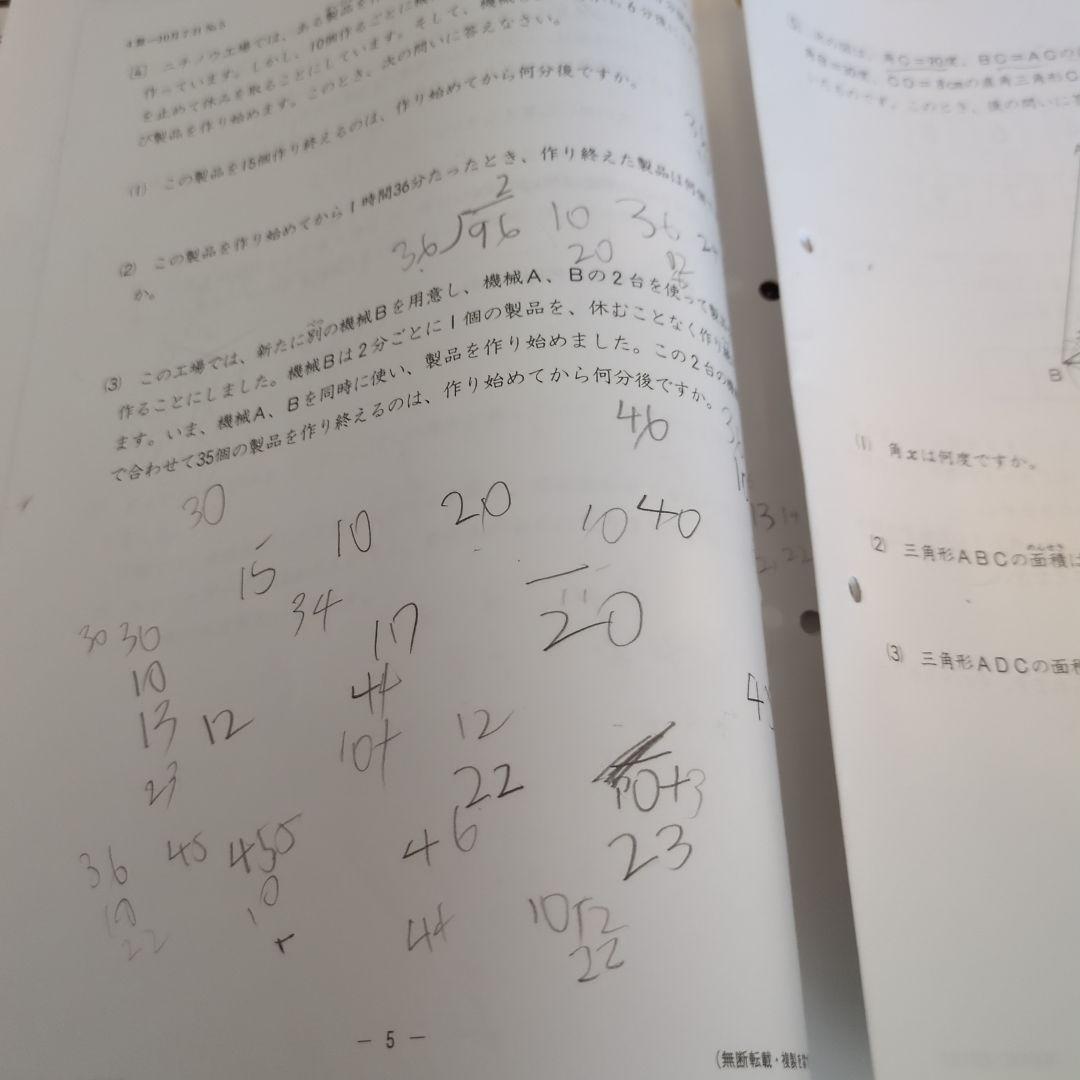 4年—10月7日 №5
(4) ニチノウ工場では、ある製品を
作っています。しかし、10個作るごとに機
を止めて休みを取ることにしています。そして、機械
び製品を作り始めます。このとき、次の問いに答えなさい。
(1) この製品を15個作り終えるのは、作り始めてから何分後ですか。
(2) この製品を作り始めてから1時間36分たったとき、作り終えた製品は何個
か。
2
36 96 10 36
20 12
(3) この工場では、新たに別の機械Bを用意し、機械A、Bの2台を使って製品
作ることにしました。機械Bは2分ごとに1個の製品を、休むことなく作り
ます。いま、機械A、Bを同時に使い、製品を作り始めました。この2台の
で合わせて35個の製品を作り終えるのは、作り始めてから何分後ですか。
46
30 10 20 10 40
15 34 17 20
30 30
10 44
13 12 10+ 12
23 22 10+3
36 45 450 46 23
10 10
22 44 10+2
22
— 5 —
(無断転載・複製を
角C=70度、BC=AC
(1) 角xは何度ですか。
(2) 三角形ABCの面積は
(3) 三角形ADCの面積
B